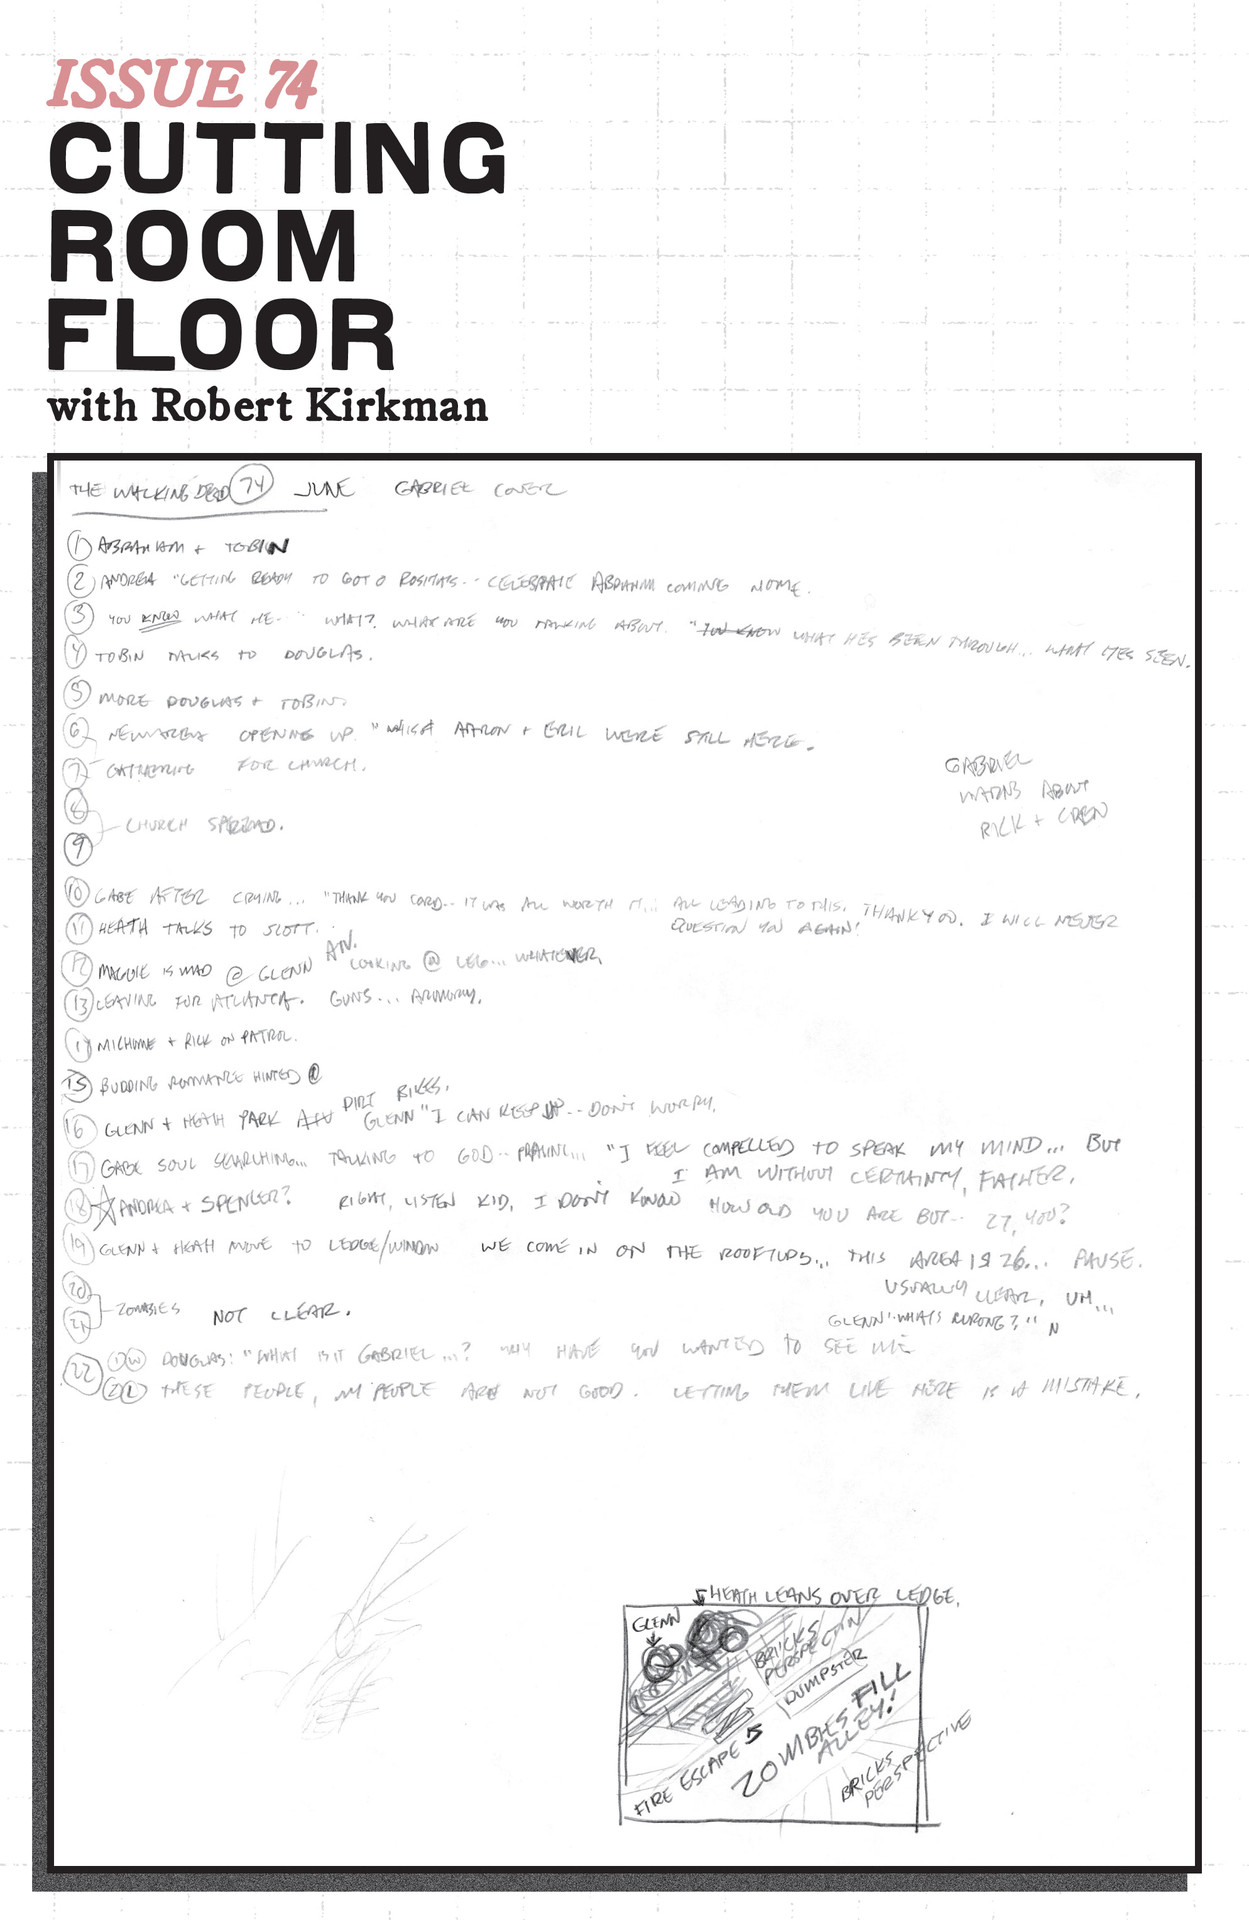 ISSUE 74
CUTTING
ROOM
FLOOR
with Robert Kirkman
THE WALKING DEAD 74 JUNE GABRIEL COVER
1 ABRAHAM + TOBIN
2 ANDREA "GETTING READY TO GOT O ROSITA'S.. CELEBRATE ABRAHAM COMING HOME.
3 YOU KNOW WHAT HE.. " WHAT? WHAT ARE YOU TALKING ABOUT. "YOU KNOW WHAT HES BEEN THROUGH... WHAT HES SEEN.
4 TOBIN TALKS TO DOUGLAS.
5 MORE DOUGLAS + TOBIN.
6 OPENING UP. " AARON + ERIC WERE STILL HERE.
7 GATHERING FOR CHURCH.
GABRIEL
WARNS ABOUT
RICK + CREW
8
CHURCH SPREAD.
9
10 GABE AFTER CRYING... "THANK YOU LORD.. IT WAS ALL WORTH IT... ALL LEADING TO THIS. THANK YOU. I WILL NEVER
QUESTION YOU AGAIN!
11 HEATH TALKS TO SCOTT.
12 MAGGIE IS MAD @ GLENN LOOKING @ LEG... WHATEVER.
13 LEAVING FOR ATLANTA. GUNS... ARMORY.
14 MICHONNE + RICK ON PATROL.
15 BUDDING ROMANCE HINTED @
16 GLENN + HEATH PARK DIRT BIKES. GLENN "I CAN KEEP UP.. DON'T WORRY.
17 GABE SOUL SEARCHING... TALKING TO GOD.. PRAYING... "I FEEL COMPELLED TO SPEAK MY MIND... BUT
I AM WITHOUT CERTAINTY, FATHER.
18 ANDREA + SPENCER? RIGHT, LISTEN KID, I DON'T KNOW HOW OLD YOU ARE BUT.. 27, YOU?
19 GLENN + HEATH MOVE TO LEDGE/WINDOW WE COME IN ON THE ROOFTOPS... THIS AREA IS 26... PAUSE.
USUALLY CLEAR, UM...
20
ZOMBIES NOT CLEAR.
21
GLENN "WHATS WRONG?"
22 DOUGLAS: "WHAT IS IT GABRIEL...? WHY HAVE YOU WANTED TO SEE ME
THESE PEOPLE, MY PEOPLE ARE NOT GOOD. LETTING THEM LIVE HERE IS A MISTAKE.
HEATH LEANS OVER LEDGE.
GLENN
BRICKS
PERSPECTIN
DUMPSTER
ZOMBIES FILL
ALLEY!
FIRE ESCAPE
BRICKS
PERSPECTIVE